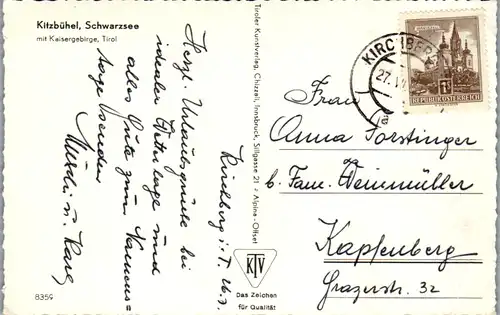 Kitzbühel, Schwarzsee
mit Kaisergebirge, Tirol
Kirchberg i. T. 26.7.
Herzl. Urlaubsgrüsse bei
idealer Wetterlage und
alles Gute zum Namens-
tage senden
u. Karl
8359
Tiroler Kunstverlag, Chizzali, Innsbruck, Sillgasse 21 Alpina-Offset
KTV
Das Zeichen
für Qualität
KIRCHBERG
27. VII
REPUBLIK ÖSTERREICH
Frau
Anna Forstinger
b. Fam. Weinmüller
Kapfenberg
Grazerstr. 32